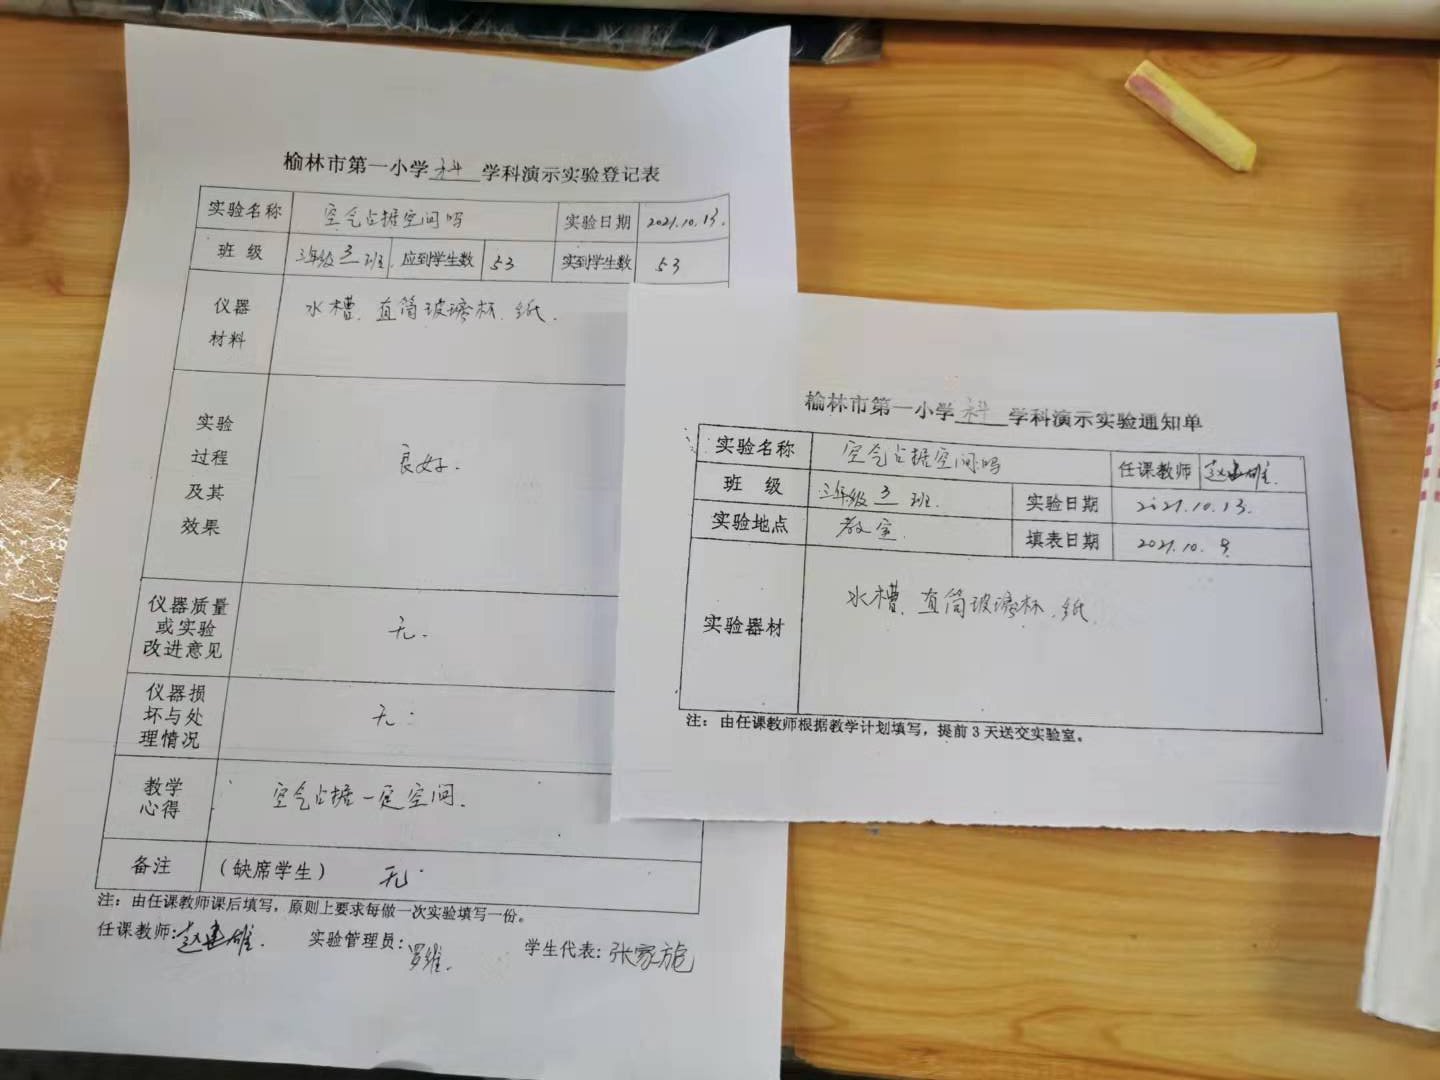 榆林市第一小学 科 学科演示实验登记表
实验名称 空气占据空间吗 实验日期 2021.10.13.
班 级 三年级 3 班. 应到学生数 53 实到学生数 53
仪器
材料
水槽. 直筒玻璃杯. 纸.
实验
过程
及其
效果
良好.
仪器质量
或实验
改进意见
无.
仪器损
坏与处
理情况
无.
教学
心得
空气占据一定空间.
备注 (缺席学生) 无.
注: 由任课教师课后填写, 原则上要求每做一次实验填写一份。
任课教师: 赵建雄. 实验管理员: 罗维. 学生代表: 张家旎
榆林市第一小学 科 学科演示实验通知单
实验名称 空气占据空间吗 任课教师 赵建雄.
班 级 三年级 3 班. 实验日期 2021.10.13.
实验地点 教室. 填表日期 2021.10.9
实验器材 水槽. 直筒玻璃杯. 纸.
注: 由任课教师根据教学计划填写, 提前3天送交实验室。